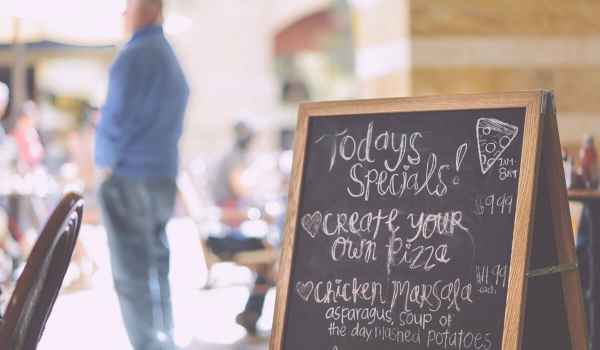 Todays
Specials!
7AM-
8PM
CREATE YOUR
OWN PIZZA
$9.99
CHICKEN MARSALA
$11.99
each
asparagus, soup of
the day, mashed potatoes